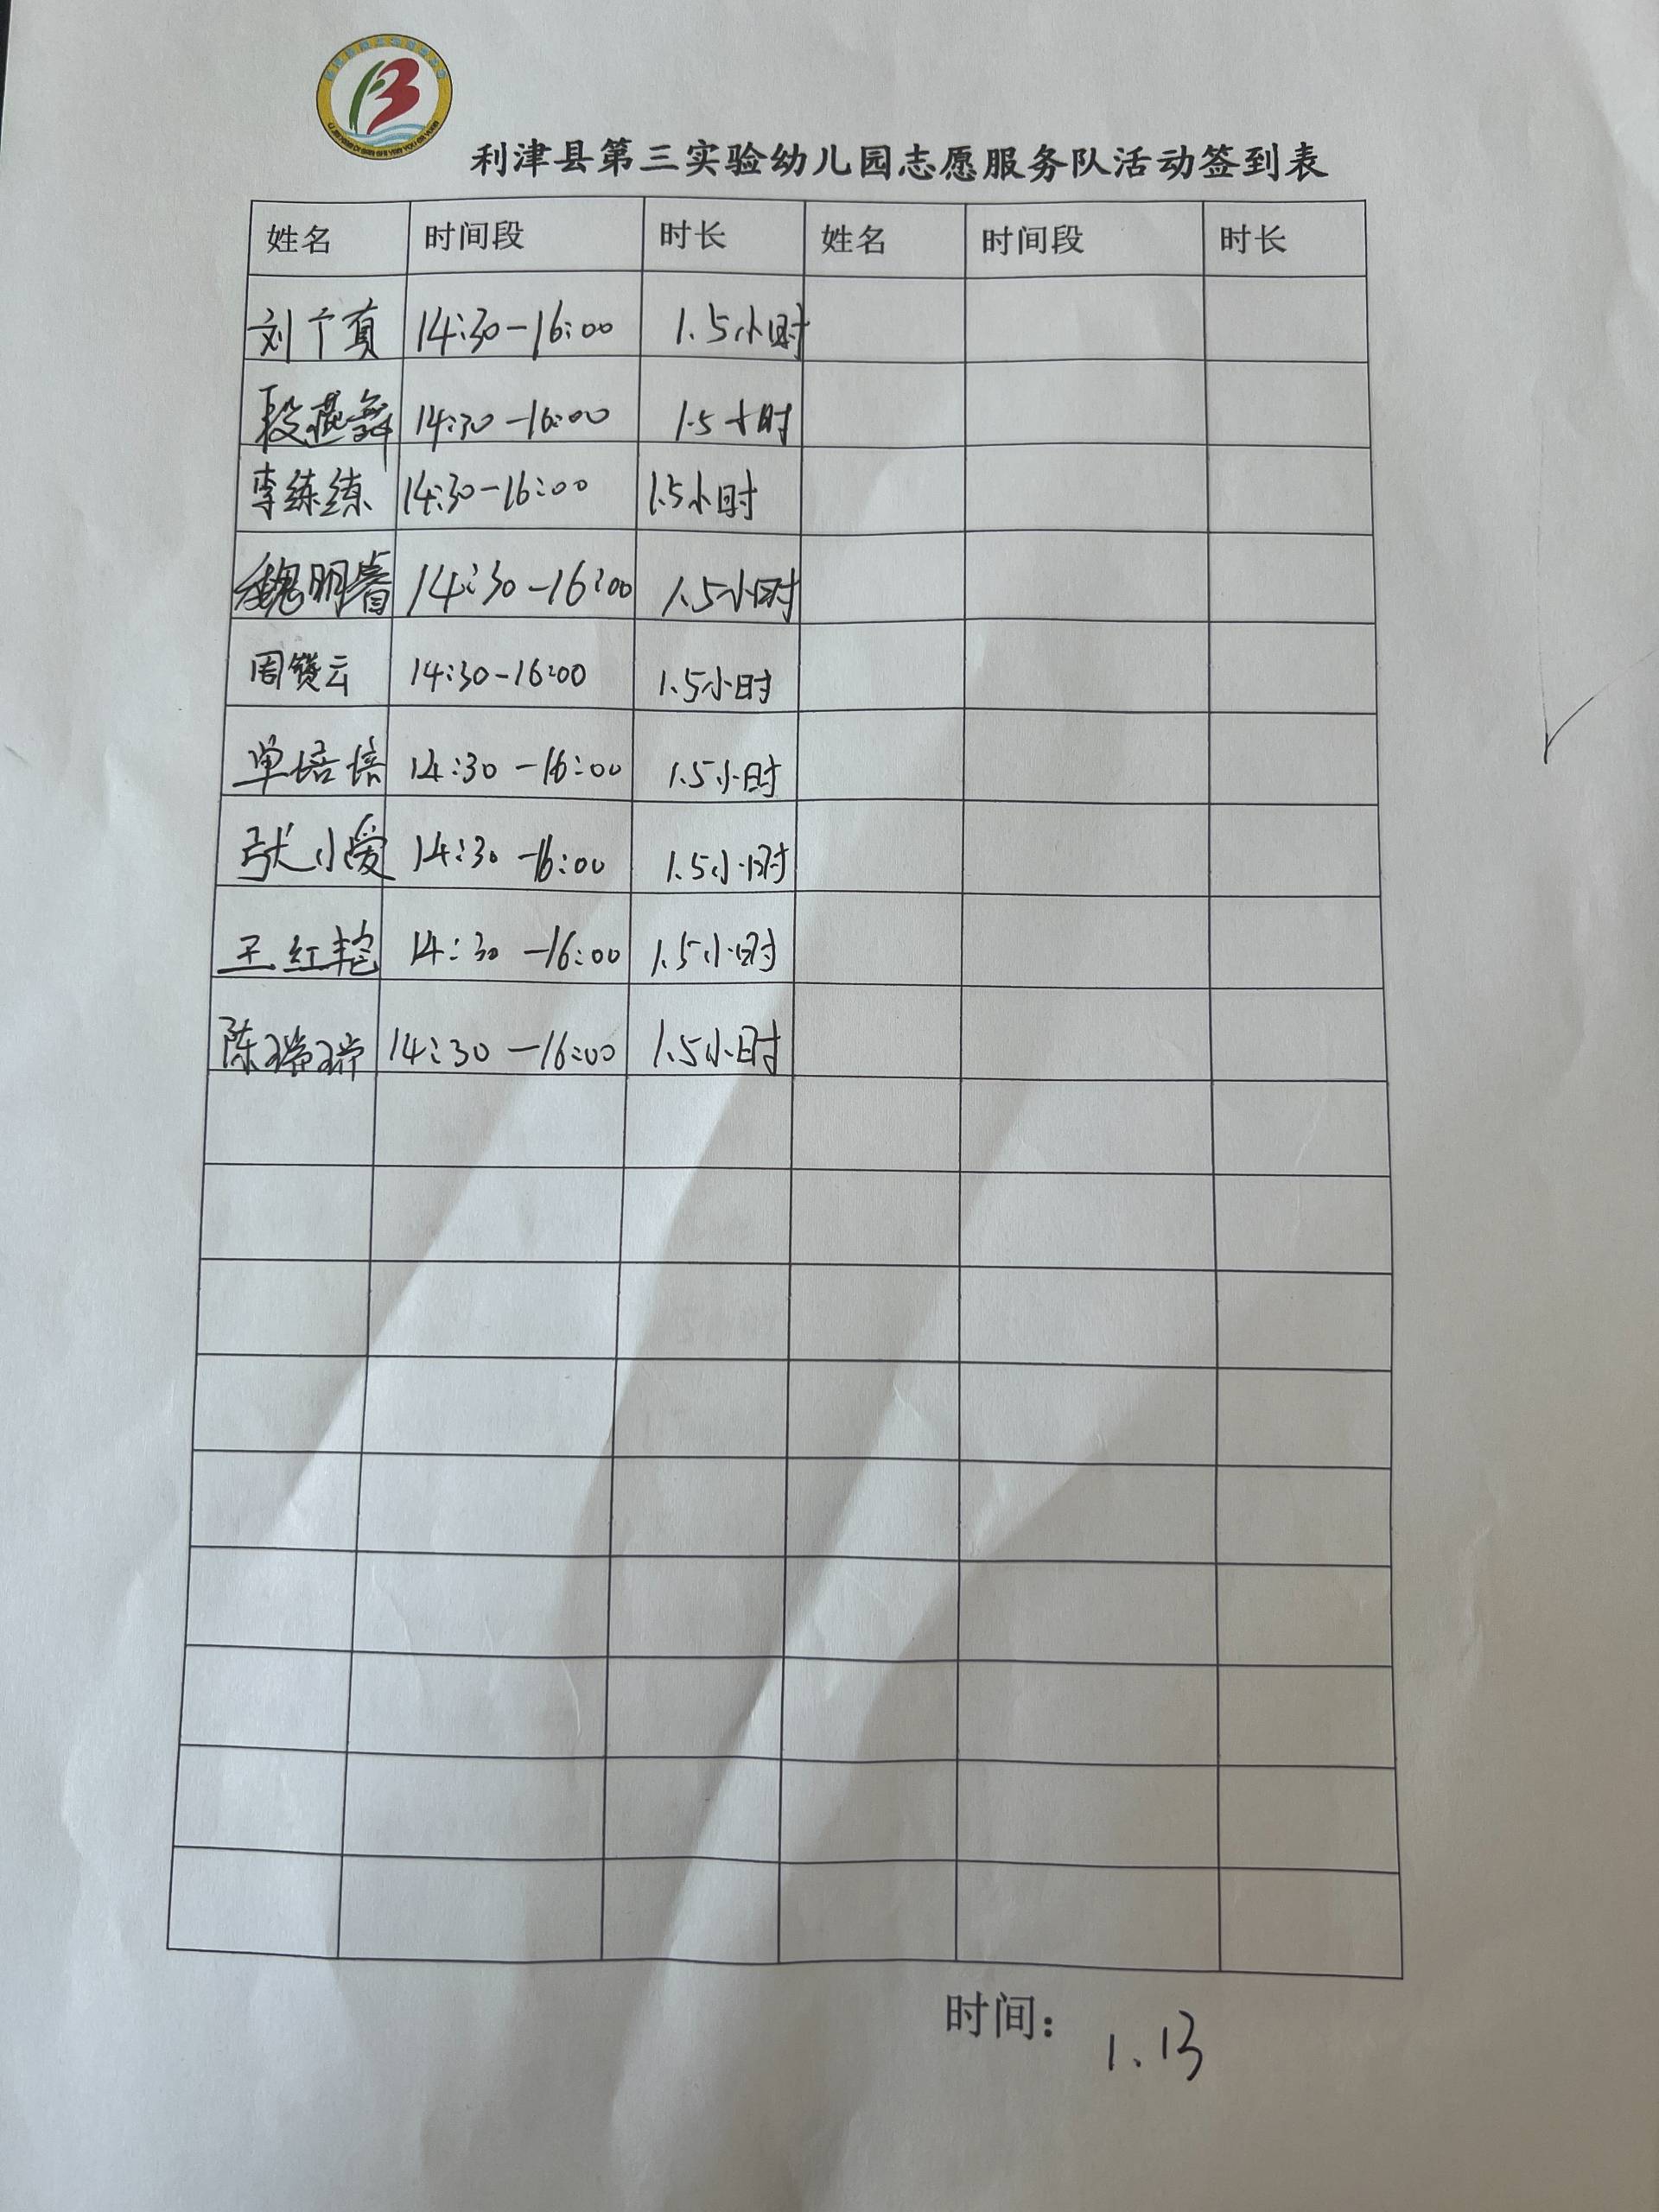 利津县第三实验幼儿园志愿服务队活动签到表
姓名 时间段 时长 姓名 时间段 时长
刘 14:30-16:00 1.5小时
段燕舞 14:30-16:00 1.5小时
李练练 14:30-16:00 1.5小时
魏明 14:30-16:00 1.5小时
周赟云 14:30-16:00 1.5小时
单培培 14:30-16:00 1.5小时
张小爱 14:30-16:00 1.5小时
王红 14:30-16:00 1.5小时
陈瑞瑞 14:30-16:00 1.5小时
时间: 1.13